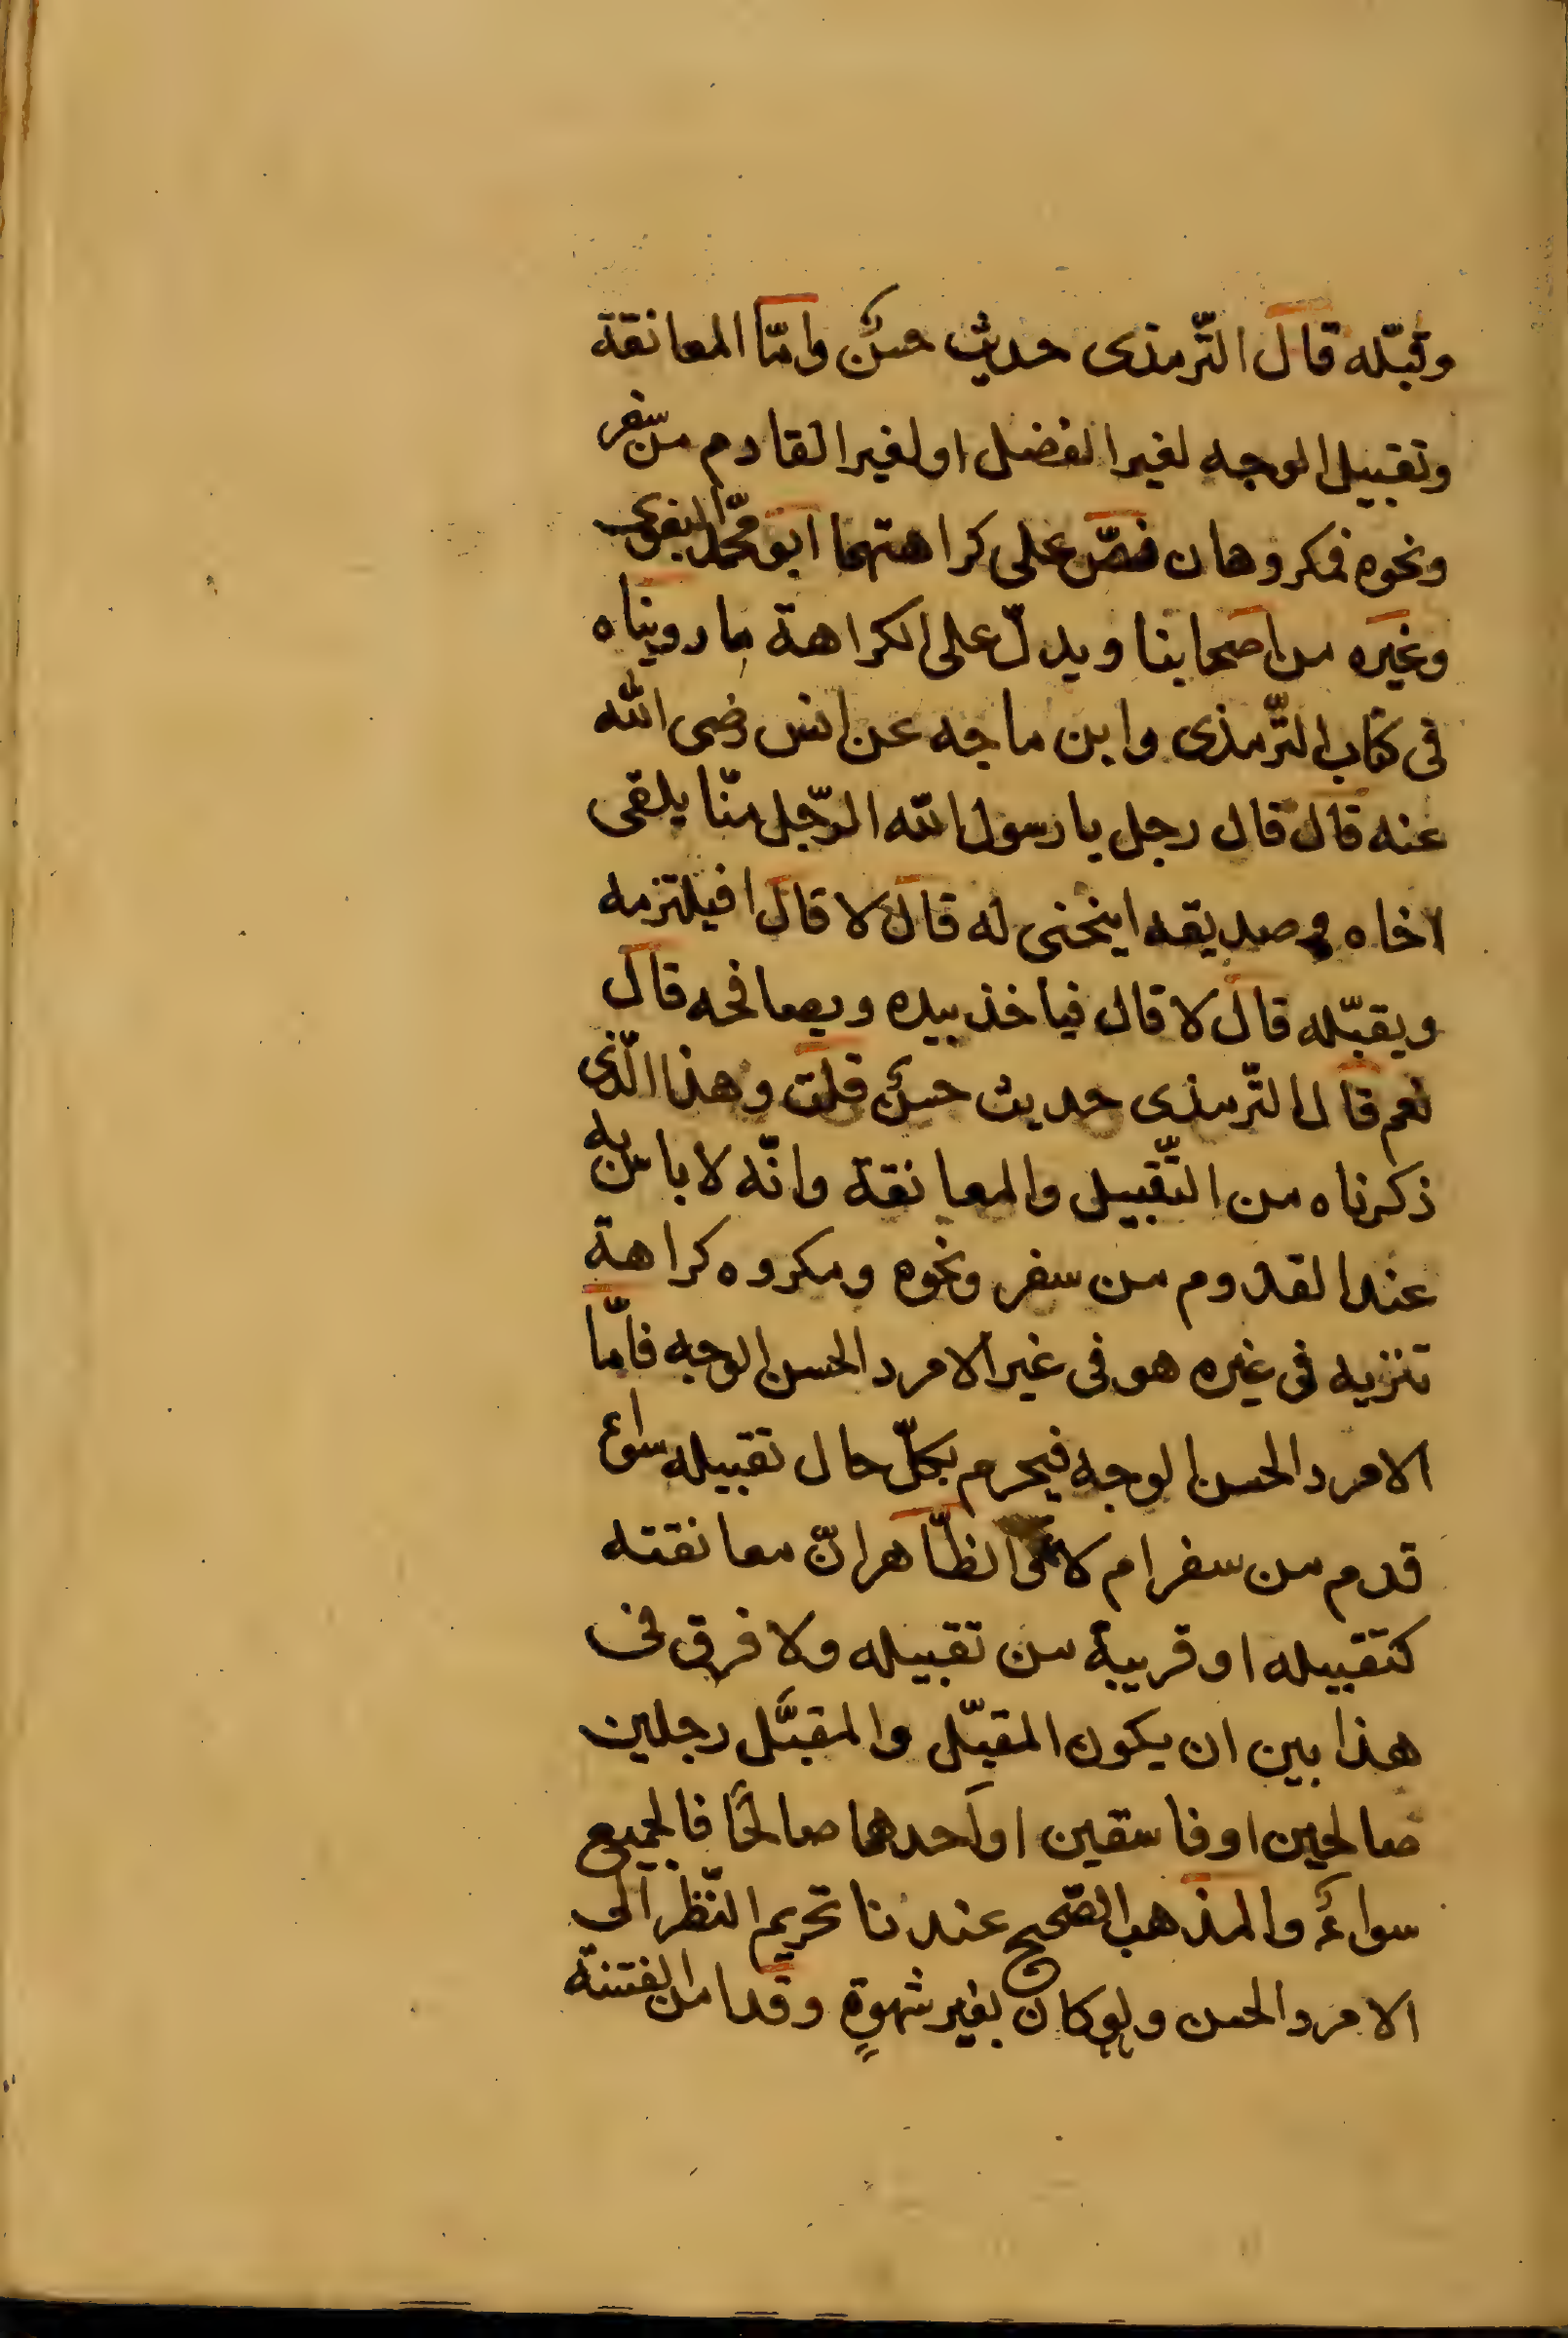 وقبّله قال التّرمذى حديث حسنٌ وامّا المعانقة
وتقبيل الوجه لغير الفضل او لغير القادم من سفر
ونحوه فمكروهان نصّ على كراهتهما ابو محمّد البغوى
وغيره من اصحابنا ويدلّ على الكراهة ما رويناه
فى كتاب التّرمذى وابن ماجه عن انس رضى الله
عنه قال قال رجل يا رسول الله الرّجل منّا يلقى
اخاه و صديقه اينحنى له قال لا قال افيلتزمه
ويقبّله قال لا قال فياخذ بيده ويصافحه قال
نعم قال التّرمذى حديث حسنٌ قلت وهذا الّذى
ذكرناه من التّقبيل والمعانقة وانّه لا باس به
عند القدوم من سفر ونحوه ومكروه كراهة
تنزيه فى غيره هو فى غير الامرد الحسن الوجه فامّا
الامرد الحسن الوجه فيحرم بكلّ حال تقبيله سواء
قدم من سفر ام لا و الظّاهر انّ معانقته
كتقبيله او قريبة من تقبيله ولا فرق فى
هذا بين ان يكون المقبّل والمقبَّل رجلين
صالحين او فاسقين او احدهما صالحًا فالجميع
سواءٌ والمذهب الصّحيح عندنا تحريم النّظر الى
الامرد الحسن ولو كان بغير شهوةٍ وقد امن الفتنة